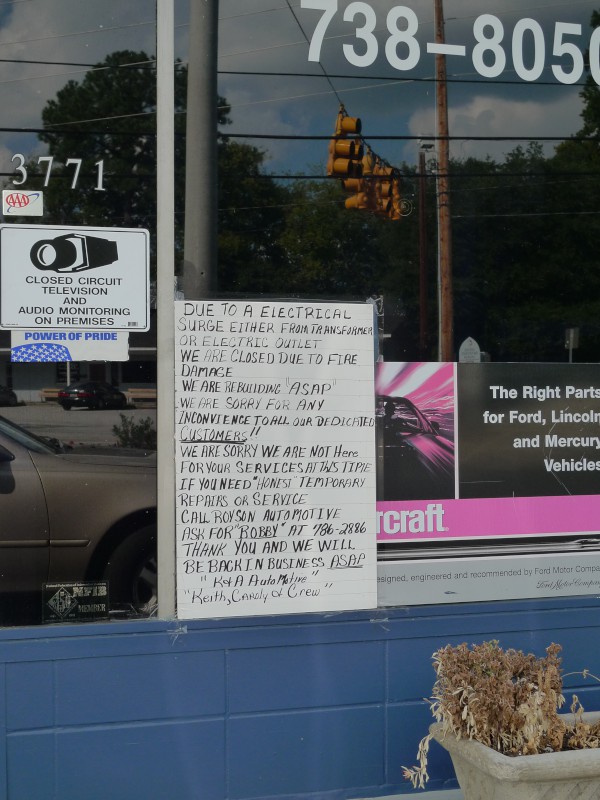 738-8050
3771
AAA
CLOSED CIRCUIT
TELEVISION
AND
AUDIO MONITORING
ON PREMISES
POWER OF PRIDE
DUE TO A ELECTRICAL
SURGE EITHER FROM TRANSFORMER
OR ELECTRIC OUTLET
WE ARE CLOSED DUE TO FIRE
DAMAGE
WE ARE REBUILDING "ASAP"
WE ARE SORRY FOR ANY
INCONVIENCE TO ALL OUR DEDICATED
CUSTOMERS!!
WE ARE SORRY WE ARE NOT Here
FOR YOUR SERVICES AT THIS TIME
IF YOU NEED "HONEST" TEMPORARY
REPAIRS OR SERVICE
CALL ROYSON AUTOMOTIVE
ASK FOR "ROBBY" AT 786-2886
THANK YOU AND WE WILL
BE BACK IN BUSINESS ASAP
"K of A AutoMotive"
"Keith, Caroly & Crew"
The Right Parts
for Ford, Lincoln
and Mercury
Vehicles
rcraft
signed, engineered and recommended by Ford Motor Compa
Ford Motor Company
NFIB
MEMBER